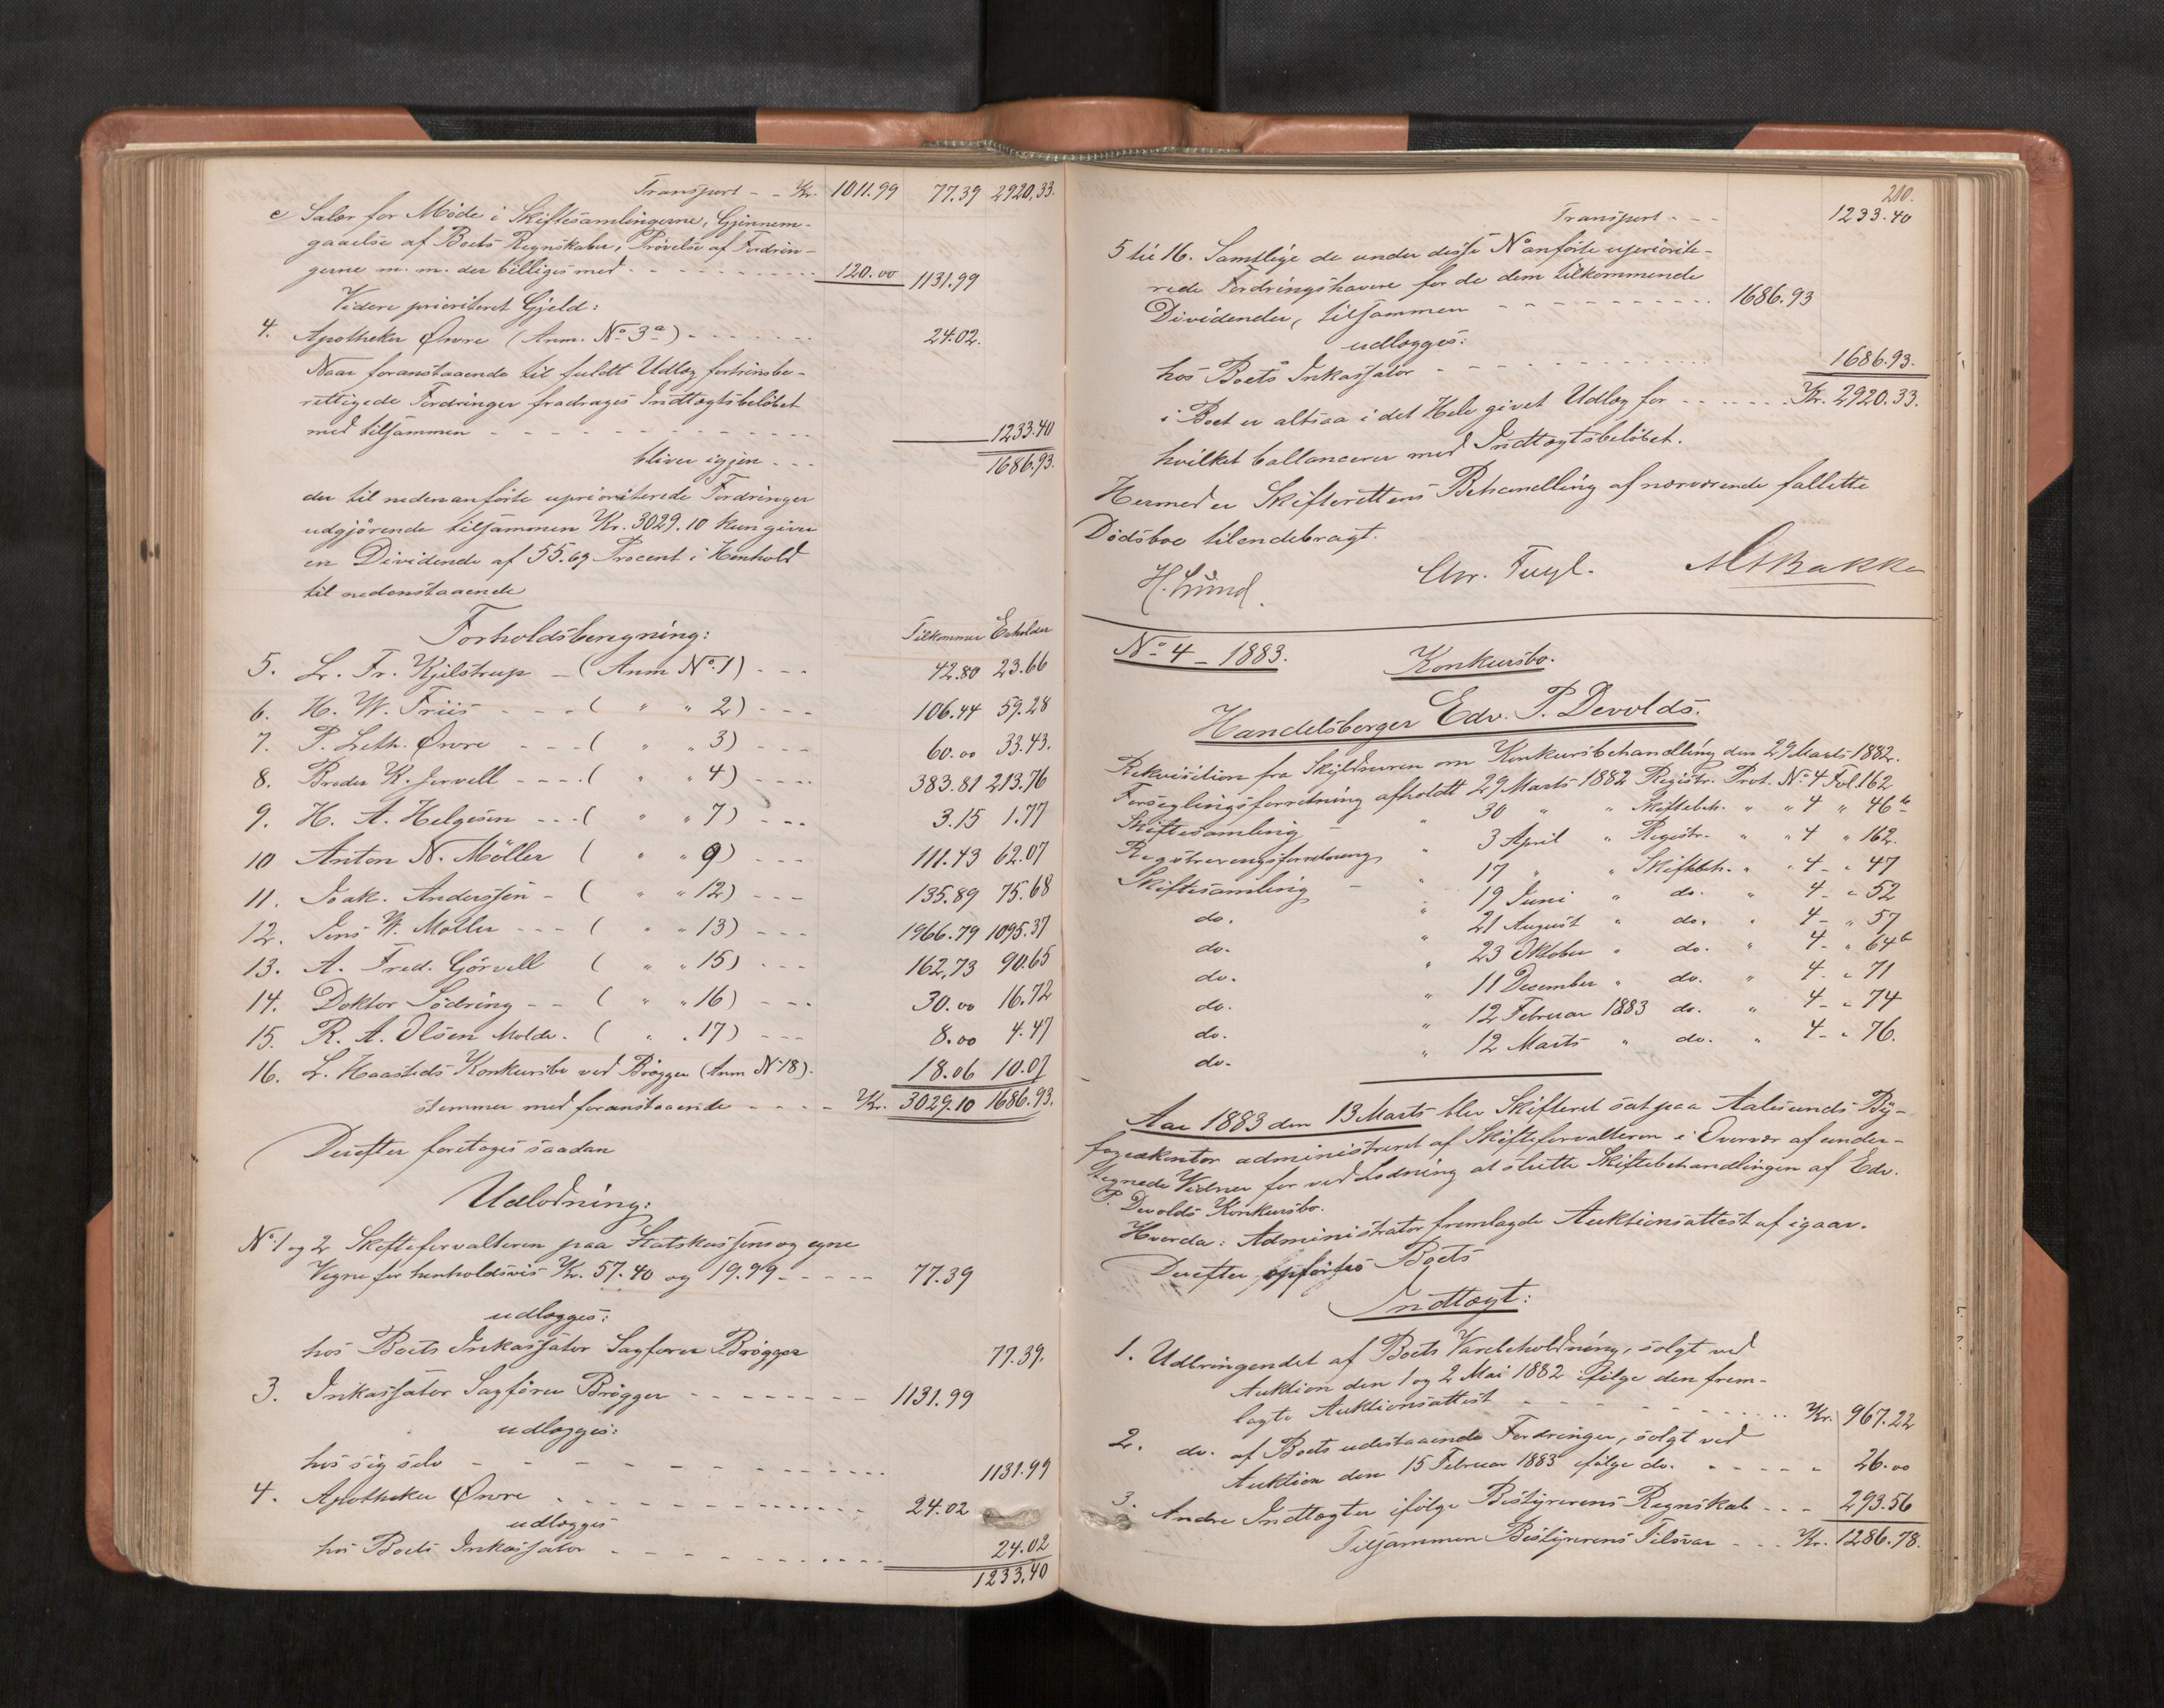 Transport - - Kr. 1011.99 77.39 2920.33.
c Salær for Møde i Skiftesamlingerne, Gjennem-
gaaelse af Boets Regnskaber, Prøvelse af Fordrin-
gerne m. m. der billiges med - - - 120.00 1131.99
Videre prioriteret Gjeld:
4. Apotheker Øwre (Anm. No 3a) - - - 24.02.
Naar foranstaaende til fuldt Udlæg fortrinsbe-
rettigede Fordringer fradrages Indtægtsbeløbet
med tilsammen - - - 1233.40
bliver igjen - - - 1686.93.
der til nedenanførte uprioriterede Fordringer
udgjørende tilsammen Kr. 3029.10 kun giver
en Dividende af 55.69 Procent i Henhold
til nedenstaaende
Forholdsberegning: Tilkommer Erholder
5. L. Fr. Kjelstrup - (Anm No 1) - - - 42.80 23.66
6. H. W. Friis - - - ( " " 2) - - - 106.44 59.28
7. P. Leth. Øwre - - - ( " " 3) - - - 60.00 33.43.
8. Brødr K. Jervell - - - ( " " 4) - - - 383.81 213.76
9. H. A. Helgesen - - - ( " " 7) - - - 3.15 1.77
10 Anton N. Möller ( " " 9) - - - 111.43 62.07
11. Isak. Anderssen - ( " " 12) - - - 135.89 75.68
12. Jens W. Møller - - - ( " " 13) - - - 1966.79 1095.37
13. A. Fred. Gørvell ( " " 15) - - - 162,73 90.65
14. Doktor Sødring - - ( " " 16) - - - 30.00 16.72
15. R. A. Olsen Molde. ( " " 17) - - - 8.00 4.47
16. L. Haasteds Konkursbo ved Brøgger (Anm No 18). 18.06 10.07
stemmer med foranstaaende - - - - Kr. 3029.10 1686.93.
Derefter foretoges saadan
Udlodning:
No 1 og 2 Skifteforvalteren paa Statskassens og egne
Vegne for henholdsvis Kr. 57.40 og 19.99 - - - - - 77.39
udlægges:
hos Boets Inkassator Sagfører Brøgger 77.39.
3. Inkassator Sagfører Brøgger - - - 1131.99
udlægges:
hos sig selv - - - 1131.99
4. Apotheker Øwre - - - 24.02
udlægges
hos Boets Inkassator - - - 24.02
1233.40
210.
Transport - - - 1233.40
5 til 16. Samtlige de under disse No anførte upriorite-
rede Fordringshavere for de dem tilkommende
Dividender, tilsammen - - - 1686.93
udlægges:
hos Boets Inkassator - - - 1686.93.
i Boet er altsaa i det Hele givet Udlæg for - - - Kr. 2920.33.
hvilket ballancerer med Indtægtsbeløbet.
Hermed er Skifterettens Behandling af nærværende fallitte
Dødsboe tilendebragt.
H. Lund. Chr. Fugl. Bakke
No 4 - 1883. Konkursbo.
Handelsborger Edv. P. Devolds.
Rekvisition fra Skyldneren om Konkursbehandling den 29 Marts 1882.
Forseglingsforretning afholdt 29 Marts 1882 Registr. Prot. No 4 Fol. 162
Skiftesamling - " 30 " " Skiftebeh. " " 4 " 46b
Registreringsforretning " 3 April " Registr. " " 4 " 162.
Skiftesamling - " 17 " " Skiftebeh. " " 4 - " 47
do. " 19 Juni " do. " 4 - " 52
do. " 21 August " do. " 4 - " 57
do. " 23 Oktober " do. " 4 - " 64b
do. " 11 December " do. " 4 - " 71
do. " 12 Februar 1883 do. " 4 - " 74
do. " 12 Marts " do. " 4 - " 76.
Aar 1883 den 13 Marts blev Skifteret sat paa Aalesunds By-
fogedkontor administreret af Skifteforvalteren i Overvær af under-
tegnede Vidner for ved Lodning at slutte Skiftebehandlingen af Edv.
P. Devolds Konkursbo.
Hvorda: Administrator fremlagde Auktionsattest af igaar.
Derefter opførtes Boets
Indtægt:
1. Udbringendet af Boets Varebeholdning, solgt ved
Auktion den 1 og 2 Mai 1882 ifølge den frem-
lagte Auktionsattest - - - Kr. 967.22
2. do. af Boets udestaaende Fordringer, solgt ved
Auktion den 15 Februar 1883 ifølge do. - - - 26.00
3. Andre Indtægter ifølge Bestyrerens Regnskab - - - 293.56
Tilsammen Bestyrerens Tilsvar - - - Kr. 1286.78.